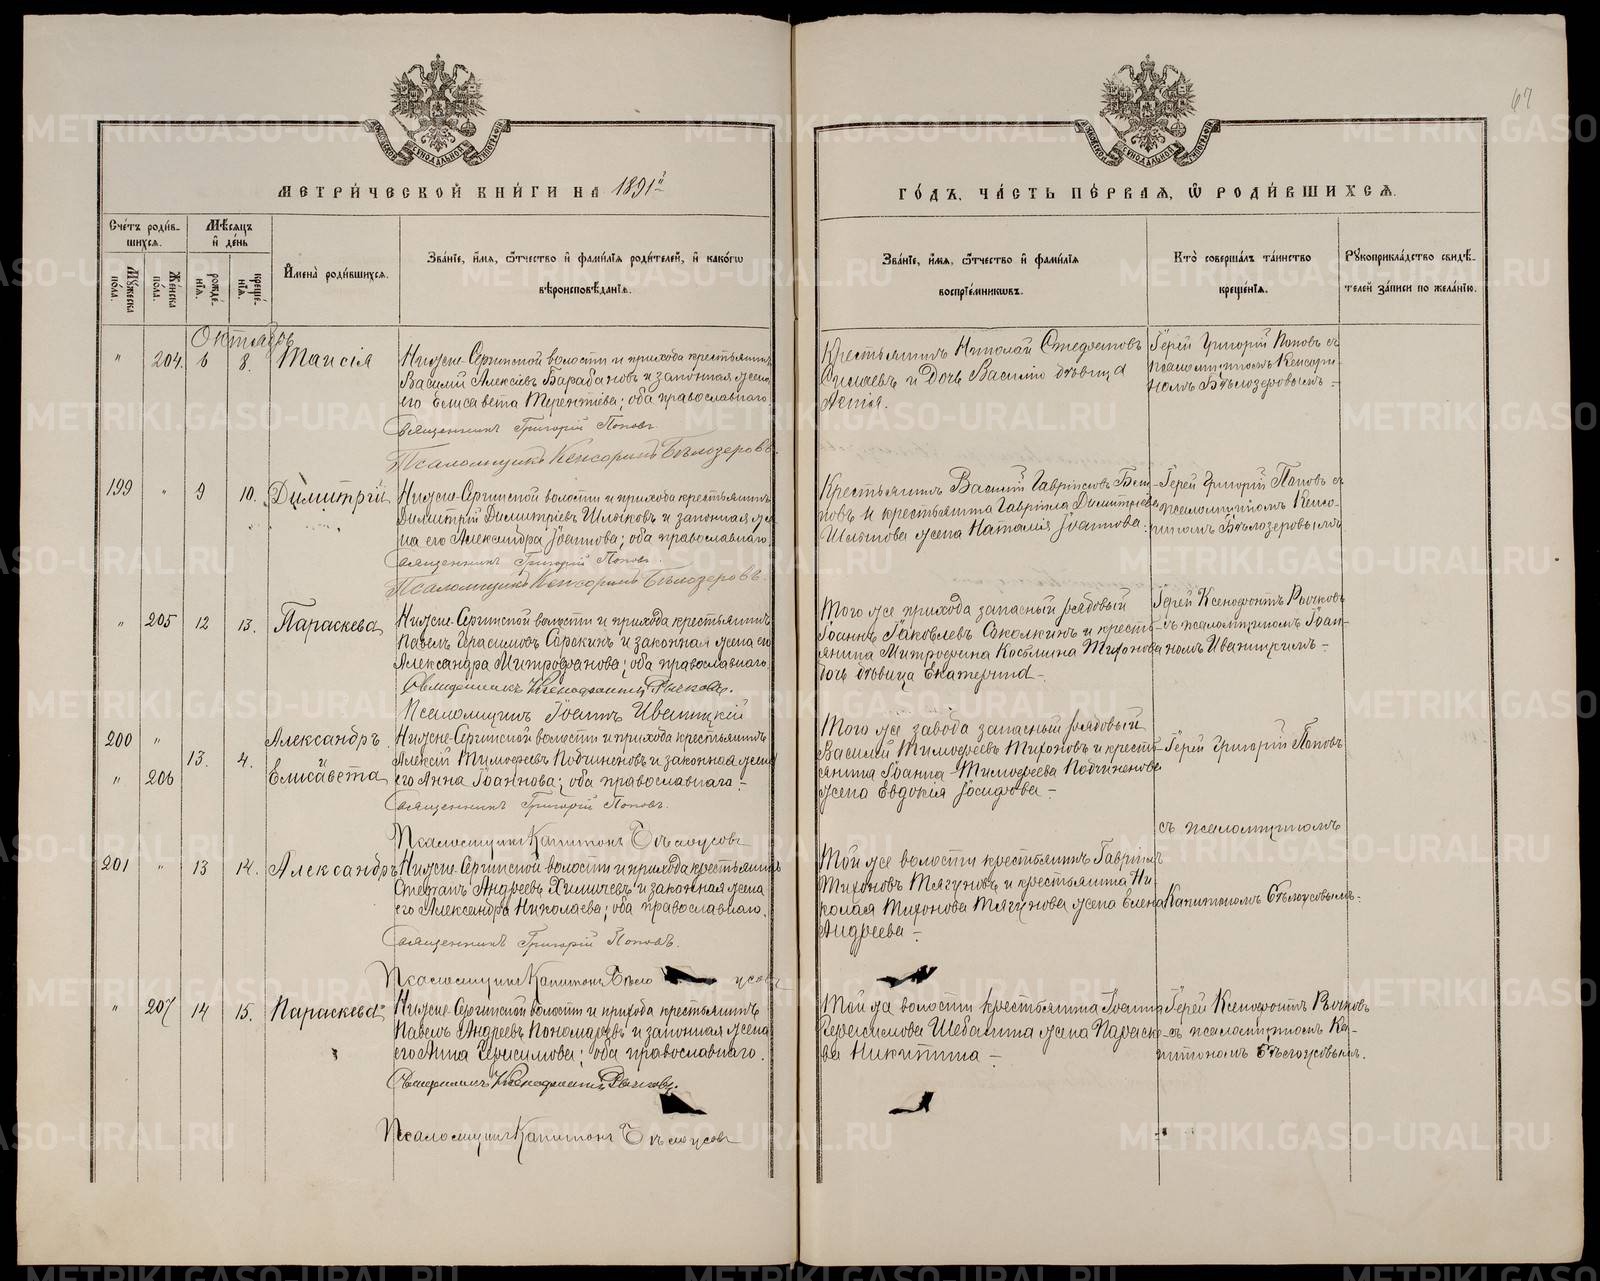 67
МЕТРИ́ЧЕСКОЙ КНИ́ГИ НА 1891й
ГО́ДЪ, ЧА́СТЬ ПЕ́РВАЯ, Ѡ҆ РОДИ́ВШИХСЯ.
Сче́тъ роди́в-
шихся.
Мѣ́сяцъ
и҆ де́нь
Му́жеска по́ла.
Же́нска по́ла.
рожде́-
нїя.
креще́-
нїя.
И҆мена̀ роди́вшихся.
Зва́нїе, и҆́мя, ѻ҆́тчество и҆ фами́лїя роди́телей, и҆ како́гѡ
вѣроисповѣ́данїя.
Зва́нїе, и҆́мя, ѻ҆́тчество и҆ фами́лїя
воспрїе́мникѡвъ.
Кто̀ соверша́лъ та́инство
креще́нїя.
Рꙋкоприкла́дство свидѣ́-
телей за́писи по жела́нїю.
Октябрь
" 204. 6 8. Таисія
Нижне-Сергинской волости и прихода крестьянинъ
Василій Алексѣевъ Барабановъ и законная жена
его Елисавета Терентіева; оба православнаго
Священникъ Григорій Поповъ.
Псаломщикъ Кенсоринъ Бѣлозеровъ.
Крестьянинъ Николай
и дочь Василію дѣвица
Іерей Григорій Поповъ съ
псаломщикомъ Кенсори-
номъ Бѣлозеровымъ.
199 " 9 10. Димитрій
Нижне-Сергинской волости и прихода крестьянинъ
Димитрій Димитріевъ и законная же-
на его Александра Іоаннова; оба православнаго.
Священникъ Григорій Поповъ.
Псаломщикъ Кенсоринъ Бѣлозеровъ.
Крестьянинъ Василій Гавріиловъ
и крестьянина Гавріила Димитріева
жена Наталія Іоаннова.
Іерей Григорій Поповъ съ
псаломщикомъ Кенсо-
риномъ Бѣлозеровымъ
" 205 12 13. Параскева
Нижне-Сергинской волости и прихода крестьянинъ
Павелъ Герасимовъ Сорокинъ и законная жена его
Александра Митрофанова; оба православнаго.
Священникъ Ксенофонтъ Рычковъ.
Псаломщикъ Іоаннъ Иваницкій
Того же прихода запасный рядовый
Іоаннъ Іаковлевъ Соколкинъ и кресть-
янина Митрофана Тихонова
дочь дѣвица Екатерина -
Іерей Ксенофонтъ Рычковъ
съ псаломщикомъ Іоан-
номъ Иваницкимъ -
200 " 13. 4. Александръ
и
" 206 Елисавета
Нижне-Сергинской волости и прихода крестьянинъ
Алексій Тимофеевъ Подчиненовъ и законная жена
его Анна Іоаннова; оба православнаго -
Священникъ Григорій Поповъ.
Псаломщикъ Капитонъ Бѣлоусовъ
Того же завода запасный рядовый
Василій Тимофеевъ Тихоновъ и кресть-
янина Іоанна Тимофеева Подчиненова
жена Евдокія Іосифова -
Іерей Григорій Поповъ
съ псаломщикомъ
201 " 13 14. Александръ
Нижне-Сергинской волости и прихода крестьянинъ
Стефанъ Андреевъ Химичевъ и законная жена
его Александра Николаева; оба православнаго.
Священникъ Григорій Поповъ.
Псаломщикъ Капитонъ Бѣлоусовъ
Той же волости крестьянинъ Гавріилъ
Тихоновъ Тягуновъ и крестьянина Ни-
колая Тихонова Тягунова жена Елена
Андреева -
Капитономъ Бѣлоусовымъ.
" 207 14 15. Параскева
Нижне-Сергинской волости и прихода крестьянинъ
Павелъ Андреевъ Пономаревъ и законная жена
его Анна Герасимова; оба православнаго.
Священникъ Ксенофонтъ Рычковъ.
Псаломщикъ Капитонъ Бѣлоусовъ
Той же волости крестьянина Іоанна
Герасимова Шебалина жена Параске-
ва Никитина -
Іерей Ксенофонтъ Рычковъ
съ псаломщикомъ Ка-
питономъ Бѣлоусовымъ.
METRIKI.GASO-URAL.RU